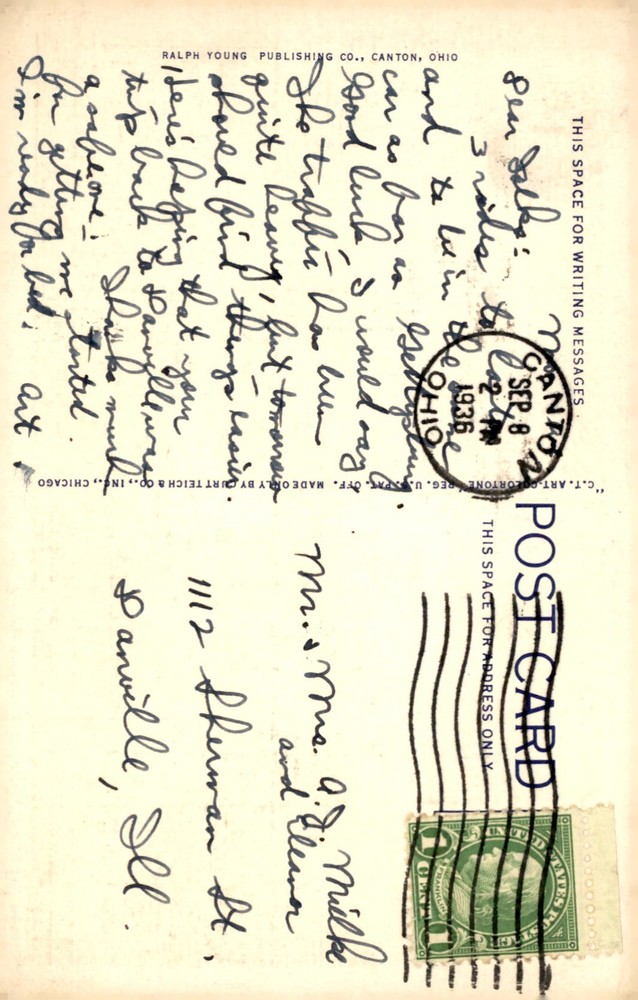 THIS SPACE FOR WRITING MESSAGES
Dear Folks:
3 rides to
and to be in the same
car as far as Gettysburg.
Good luck I would say.
The traffic has been
quite heavy, but tomorrow
should find things easier.
Here's hoping that your
trip back to Danville was
a safe one. Thanks much
for getting me started.
I'm ready for bed. Art
RALPH YOUNG PUBLISHING CO., CANTON, OHIO
"C.T. ART-COLORTONE" REG. U.S. PAT. OFF. MADE ONLY BY CURT TEICH & CO., INC., CHICAGO
CANTON
SEP 8
2 PM
1936
OHIO
POST CARD
THIS SPACE FOR ADDRESS ONLY
UNITED STATES POSTAGE
FRANKLIN
1 CENT 1
Mr. & Mrs. A. J. Mielke
and Eleanor
1112 Sherman St.,
Danville, Ill.